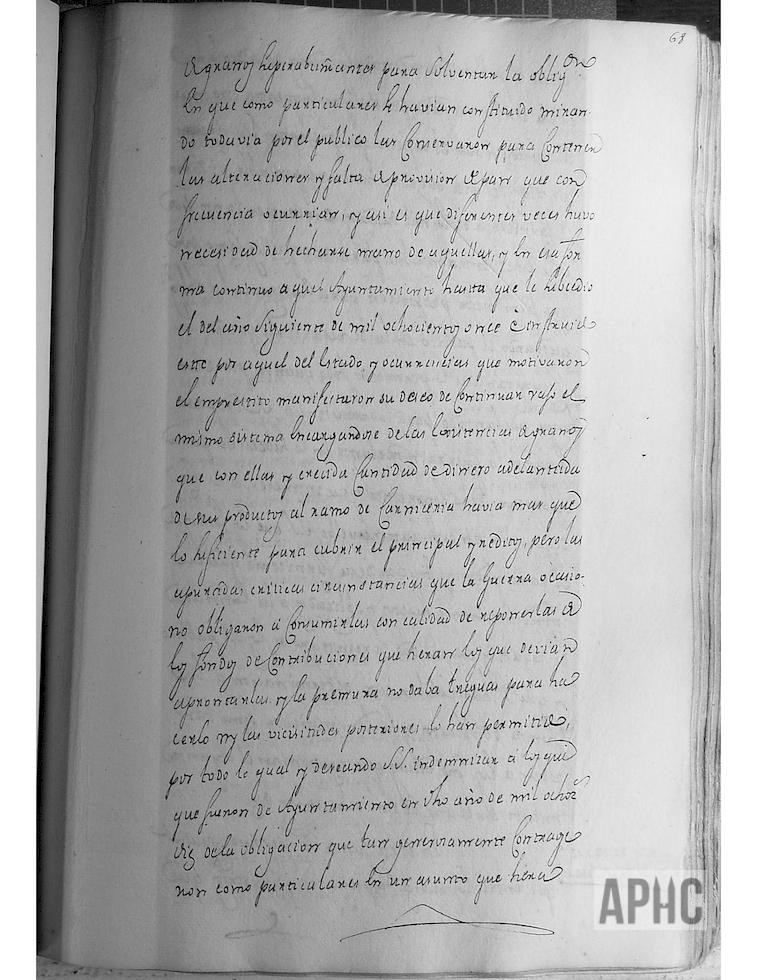 68
de granos superabundantes para solventar la oblig.on
en que como particulares se havian constituido miran
do todavia por el publico las Conservaron para Contener
las alteraciones y falta de provision de pan que con
frecuencia ocurrian, y asi es que diferentes veces huvo
necesidad de hecharse mano de aquellas, y en esa for
ma continuo aquel Ayuntamiento hasta que le subcedio
el del año Siguiente de mil ochocientos once è instruido
este por aquel del Estado, y ocurrencias que motivaron
el emprestito manifestaron su deseo de Continuar vajo el
mismo sistema encargandose de las Existencias de granos
que con ellas y crecida Cantidad de dinero adelantada
de sus productos al ramo de Carniceria havia mas que
lo suficiente para cubrir el principal y reditos, pero las
apuradas criticas circunstancias que la Guerra ocasio-
no obligaron a Consumirlas con calidad de reponerlas de
los fondos de Contribuciones que heran los que devian
aprontarlas y la premura no daba treguas para ha
cerlo ni las vicisitudes posteriores lo han permitido,
por todo lo qual y deseando S.S. indemnizar a los que
que fueron de Ayuntamiento en dho año de mil ochoz.s
diez de la obligacion que tan generosamente Contrage
ron como particulares en un asunto que hera
APHC